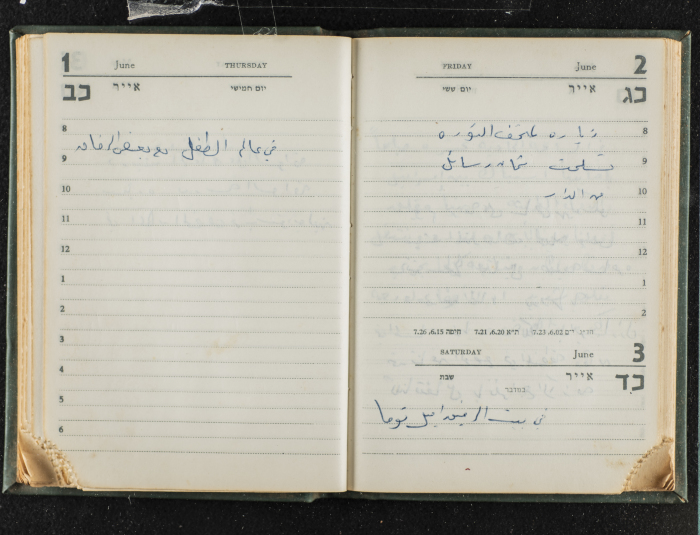 1 June THURSDAY
כב אייר יום חמישי
8
في عالم الطفل مع بعض الرفاق
9
10
11
12
1
2
3
4
5
6
FRIDAY June 2
יום ששי אייר כג
8
زياره لمتحف الثوره
9
تسلمت ثمان رسائل
10
من الدار
11
12
1
2
7.26 ,6.15 חיפה 7.21 ,6.20 ת״א 7.23 ,6.02 י־ם
SATURDAY June 3
שבת אייר כד
במדבר
في بيت الرفيق اميل توما